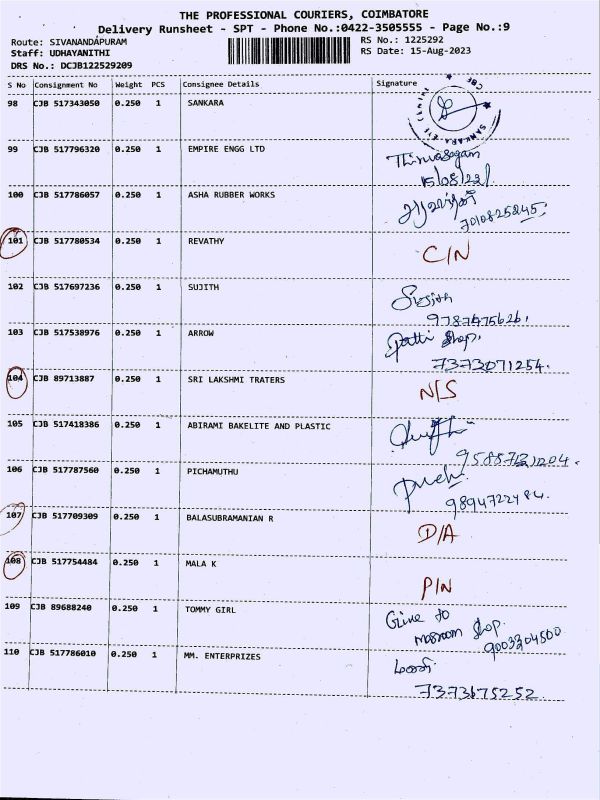 THE PROFESSIONAL COURIERS, COIMBATORE
Delivery Runsheet - SPT - Phone No.:0422-3505555 - Page No.:9
Route: SIVANANDAPURAM
RS No.: 1225292
Staff: UDHAYANITHI
RS Date: 15-Aug-2023
DRS No.: DCJB122529209
S No Consignment No Weight PCS Consignee Details Signature
98 CJB 517343050 0.250 1 SANKARA
99 CJB 517796320 0.250 1 EMPIRE ENGG LTD
15/08/22/
100 CJB 517786057 0.250 1 ASHA RUBBER WORKS
7010825245
101 CJB 517780534 0.250 1 REVATHY C/N
102 CJB 517697236 0.250 1 SUJITH Sujith
9787475626.
103 CJB 517538976 0.250 1 ARROW Patti Shop.
7373071254.
104 CJB 89713887 0.250 1 SRI LAKSHMI TRATERS N/S
105 CJB 517418386 0.250 1 ABIRAMI BAKELITE AND PLASTIC
106 CJB 517787560 0.250 1 PICHAMUTHU
9894722484.
107 CJB 517709309 0.250 1 BALASUBRAMANIAN R D/A
108 CJB 517754484 0.250 1 MALA K P/N
109 CJB 89688240 0.250 1 TOMMY GIRL Give to
Shop.
9003304500
110 CJB 517786010 0.250 1 MM. ENTERPRIZES
7373675252